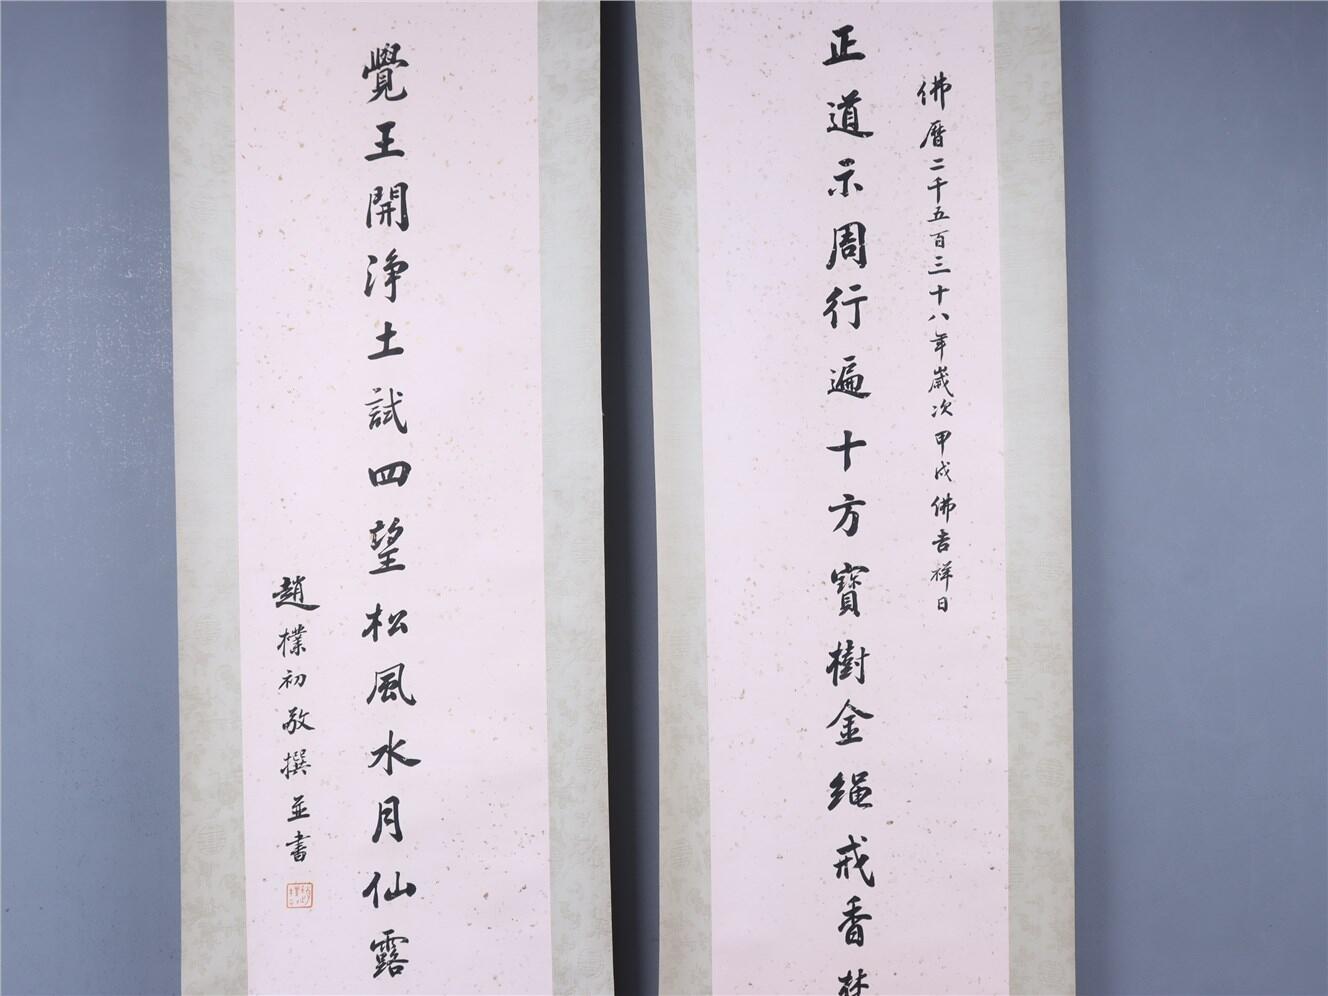 佛曆二千五百三十八年歲次甲戌佛吉祥日
正道示周行遍十方寶樹金繩戒香梵
覺王開淨土試四望松風水月仙露
趙樸初敬撰並書